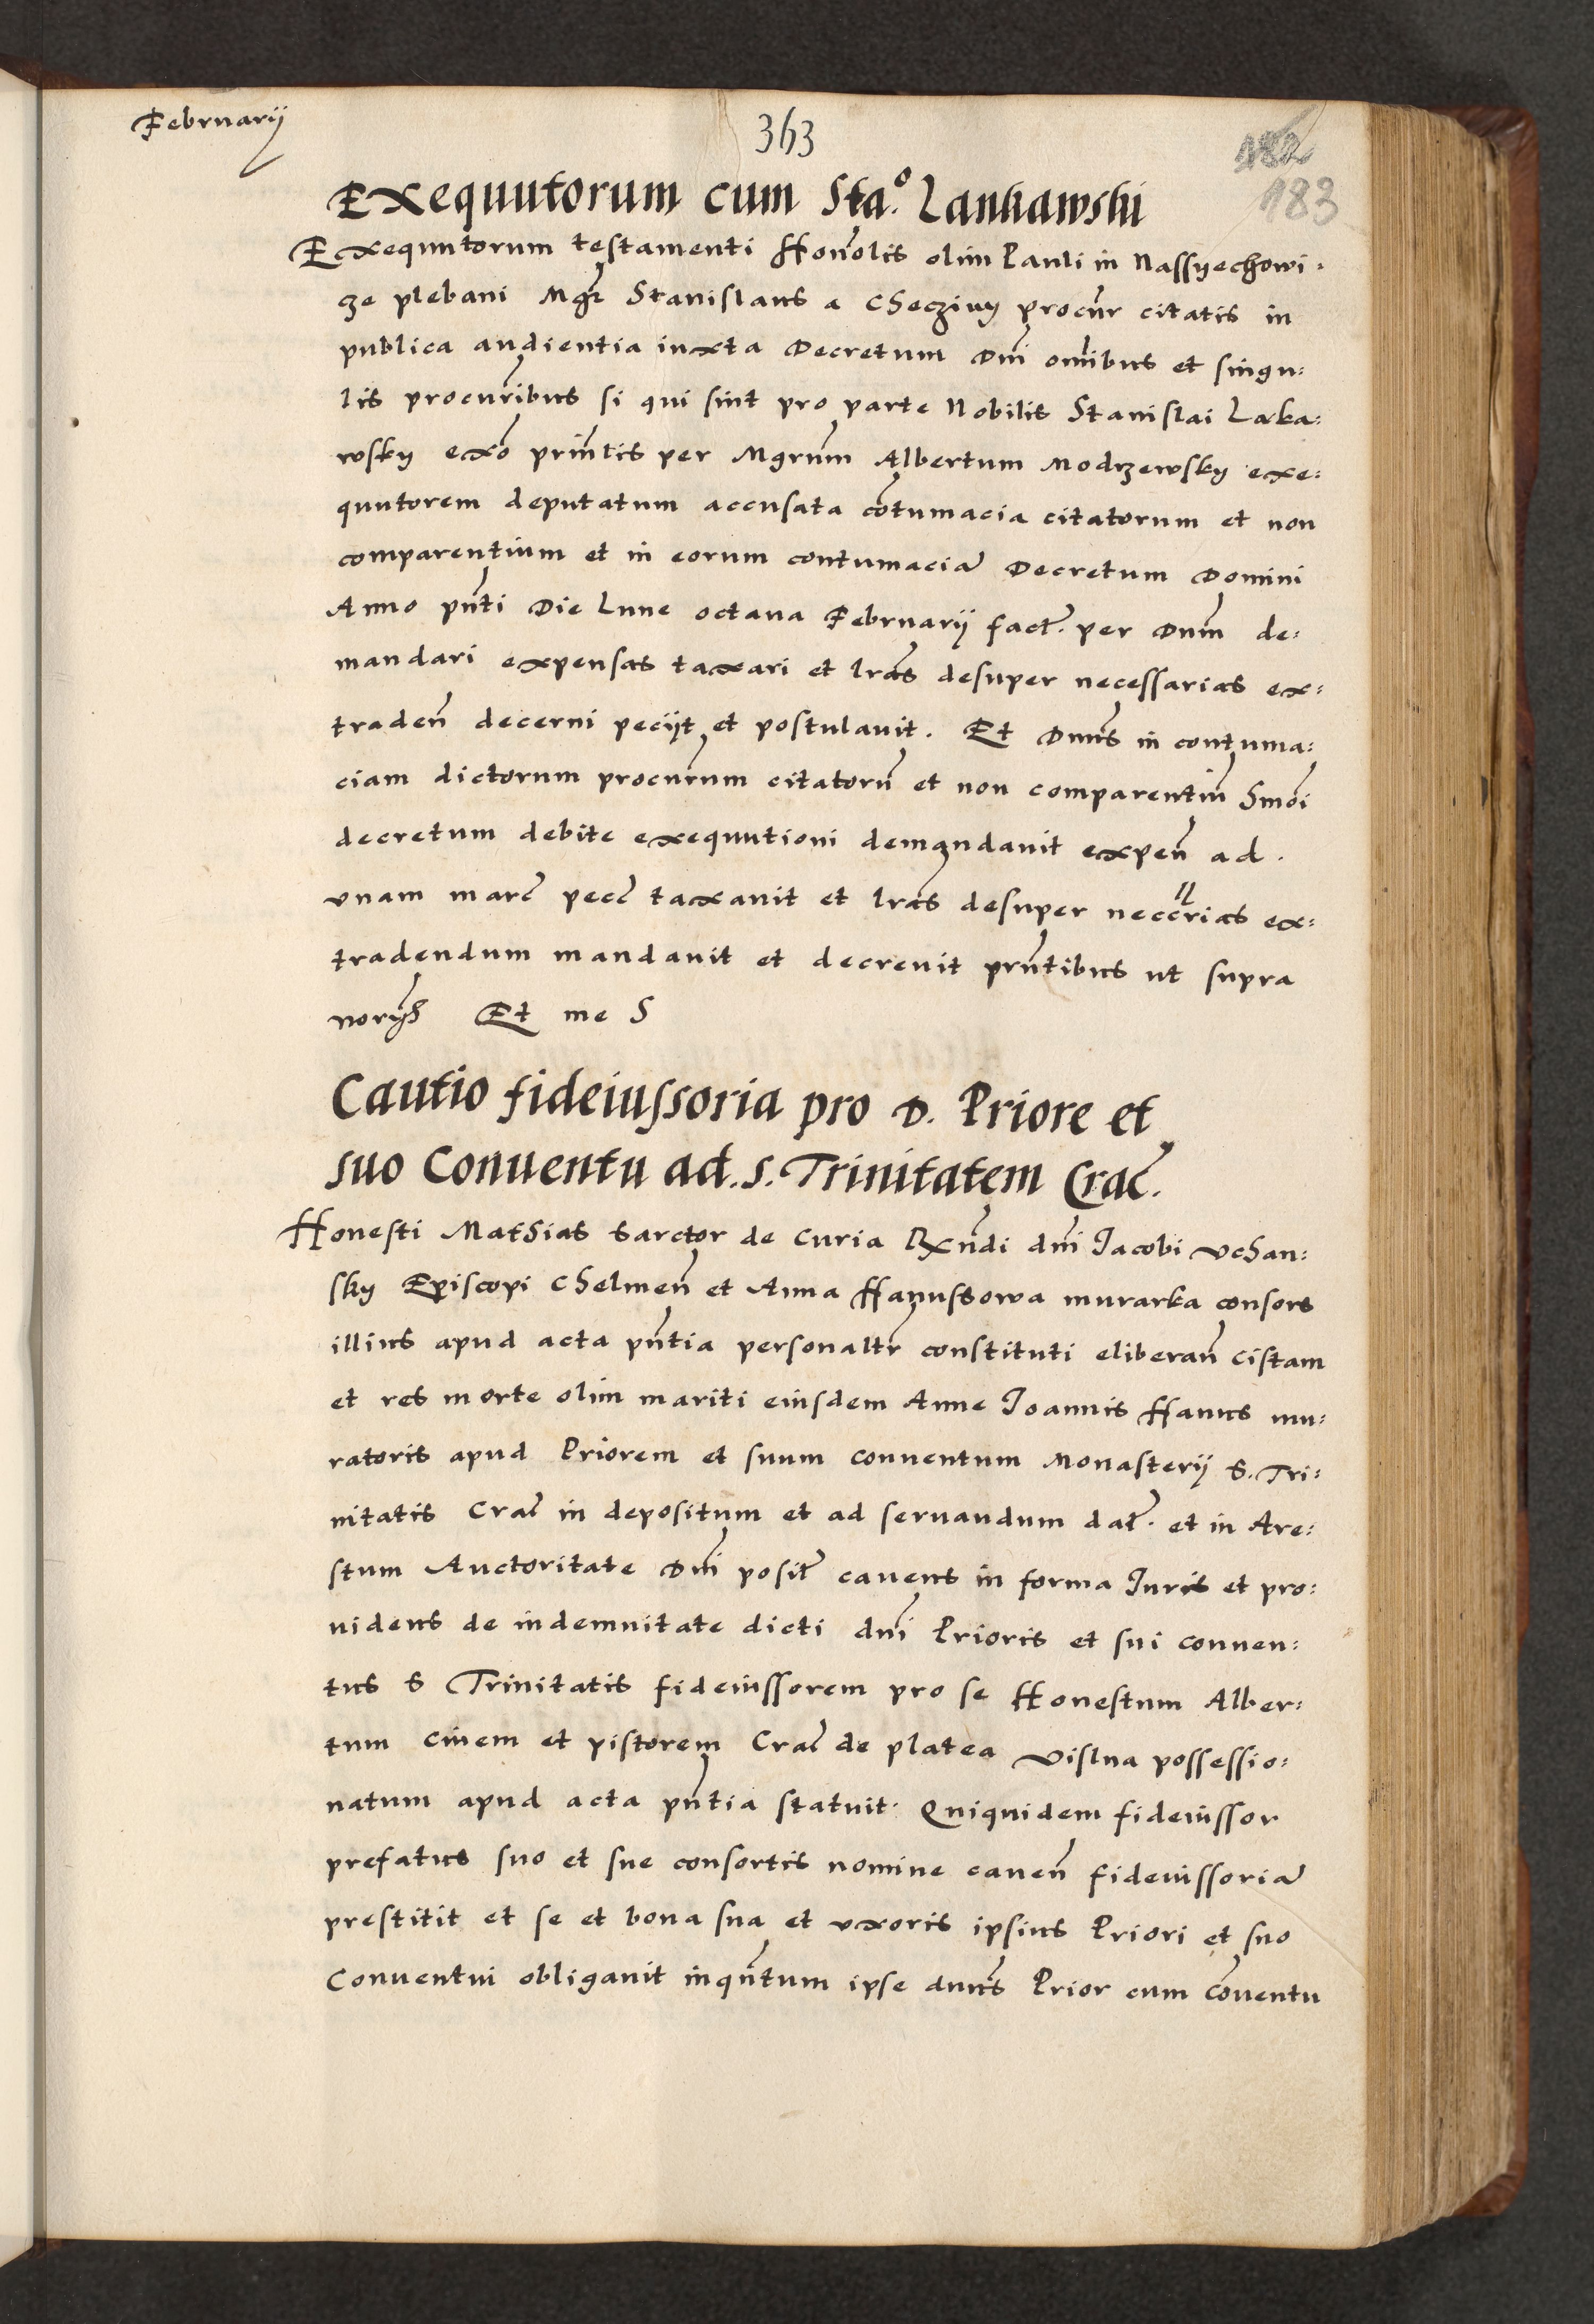 Februarij
363
182
183
Exequutorum cum Sta.º Lankawski
Exequutorum testamenti Honolis olim Pauli in Nassyechowi:
ze plebani Mgr Stanislaus a Checziny procur citatis in
publica audientia iuxta Decretum Dni omibus et singu:
lis procuribus si qui sint pro parte Nobilis Stanislai Laka:
wsky exo printis per Mgrum Albertum Modrzewsky exe:
quutorem deputatum accusata cotumacia citatorum et non
comparentium et in eorum contumacia Decretum Domini
Anno pnti Die Lune octava Februarij fact. per Dnm de:
mandari expensas taxari et lras desuper necessarias ex:
traden decerni peciit et postulavit. Et Dnus in contuma:
ciam dictorum procurum citatoru et non comparentiu Smoi
decretum debite exequutioni demandavit expen ad.
unam marc pecc taxavit et lras desuper neccrias ex:
tradendum mandavit et decrevit prntibus ut supra
norijs Et me S
Cautio fideiussoria pro D. Priore et
suo Conventu ad. S. Trinitatem Crac.
Honesti Mathias Sarctor de Curia Rxndi dni Jacobi Uchan:
sky Episcopi Chelmen et Anna Hanussowa murarka consors
illius apud acta pntia personaltr constituti eliberan cistam
et res morte olim mariti eiusdem Anne Joannis Hanus mu:
ratoris apud Priorem et suum conventum Monasterij S. Tri:
nitatis Crac in depositum et ad servandum dat. et in Are:
stum Auctoritate Dni posit cavens in forma Juris et pro:
videns de indemnitate dicti dni Prioris et sui conven:
tus S Trinitatis fideiussorem pro se Honestum Alber:
tum civem et pistorem Crac de platea Vislna possessio:
natum apud acta pntia statuit. Quiquidem fideiussor
prefatus suo et sue consortis nomine caven fideiussoria
prestitit et se et bona sua et uxoris ipsius Priori et suo
Conventui obligavit inquntum ipse dnus Prior cum coventu